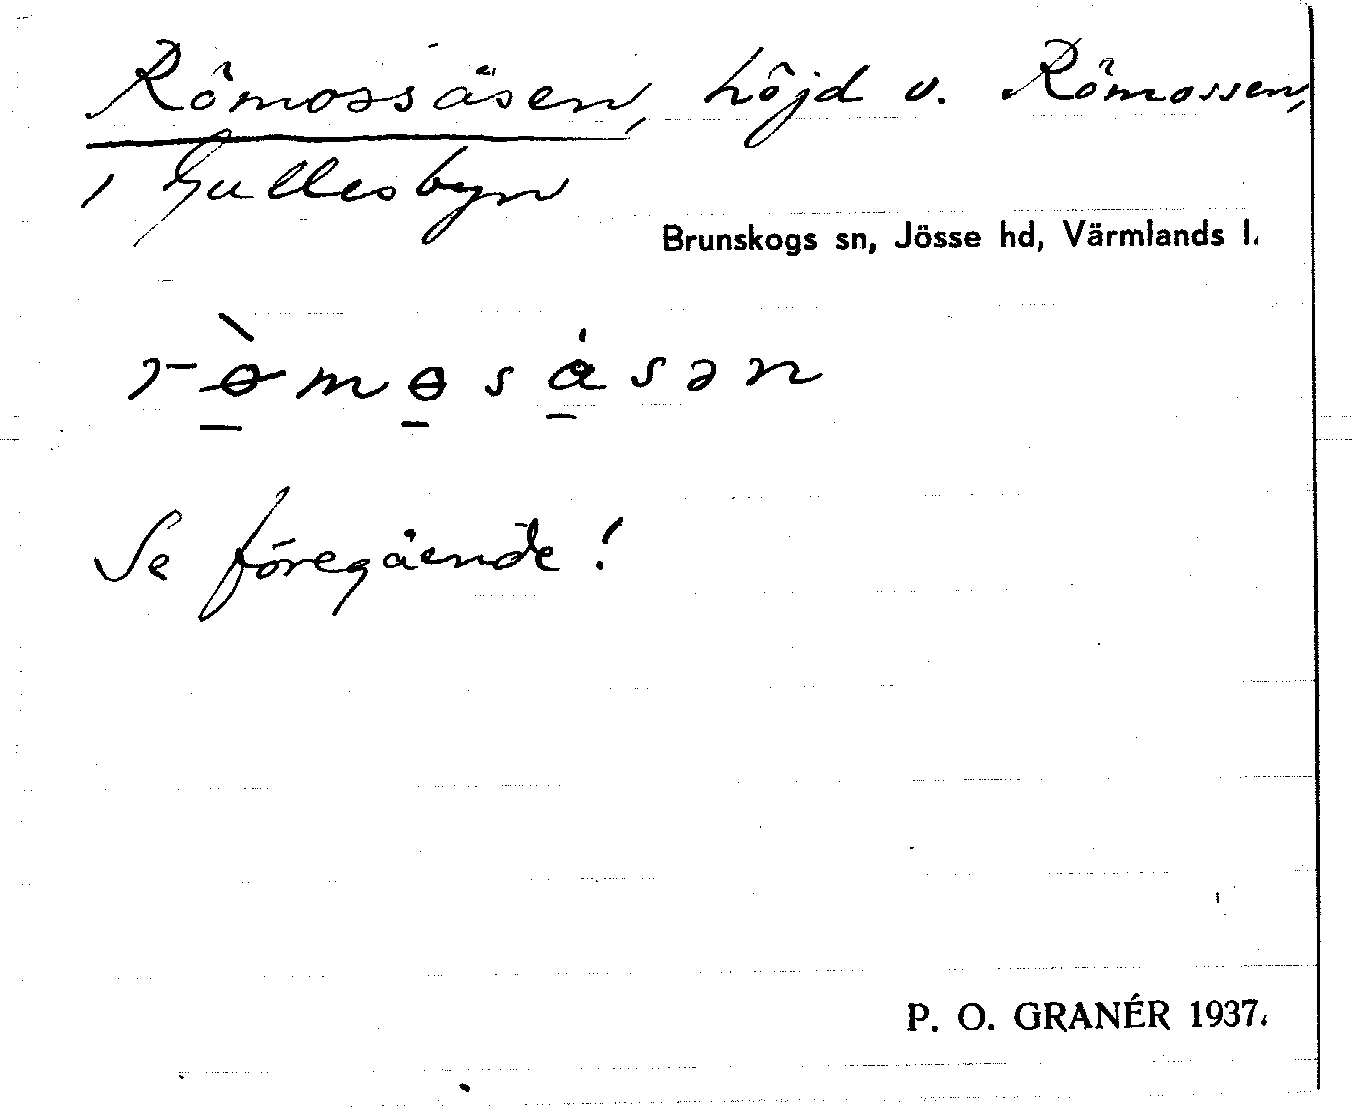 Römossåsen, höjd v. Römossen,
i Gullesbyn
Brunskogs sn, Jösse hd, Värmlands l.
rɵ̀mɵsåsən
Se föregående!
P. O. GRANÉR 1937.